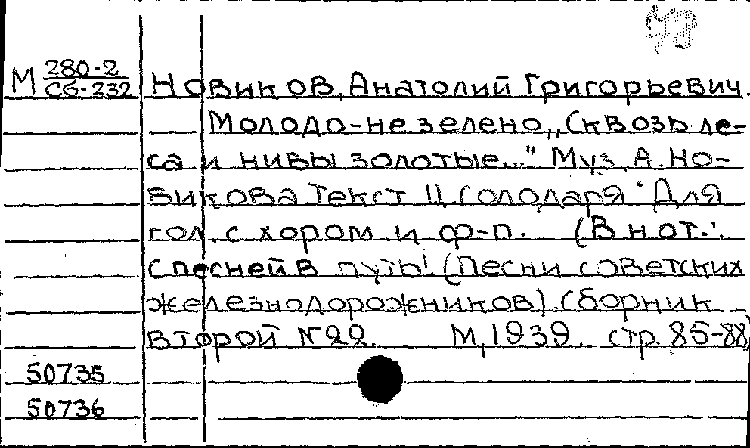 М 280-2
Сб-232
Новиков, Анатолий Григорьевич.
Молодо-не зелено „Сквозь ле-
са и нивы золотые..." Муз. А. Но-
викова Текст Ц Солодаря Для
гол. с хором и ф-п. (В нот.:
С песней в путь! (Песни советских
железнодорожников). Сборник
второй N22. М, 1939. стр. 85-88
50735
50736